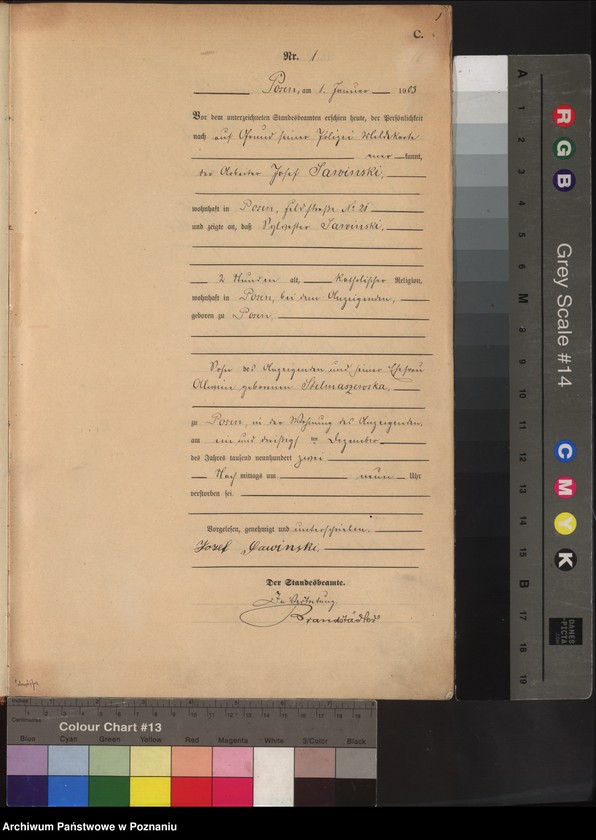 1
C.
Nr. 1
Posen, am 1. Januar 1903
Vor dem unterzeichneten Standesbeamten erschien heute, der Persönlichkeit
nach auf Grund seiner Polizei Meldekarte
aner kannt,
der Arbeiter Josef Sawinski,
wohnhaft in Posen, Feldstraße № 21
und zeigte an, daß Sylvester Sawinski,
2 Stunden alt, katholischer Religion,
wohnhaft in Posen, bei dem Anzeigenden,
geboren zu Posen,
Sohn des Anzeigenden und seiner Ehefrau
geborenen Stelmaszewska,
zu Posen, in der Wohnung des Anzeigenden,
am ein und dreißigsten Dezember
des Jahres tausend neunhundert zwei
Nach mittags um neun Uhr
verstorben sei.
Vorgelesen, genehmigt und unterschrieben.
Jozef Sawinski.
Der Standesbeamte.
In Vertretung
Brandstädter
A 1 2 3 4 5 6 M 8 9 10 11 12 13 14 15 B 17 18 19
R G B
Grey Scale #14
C M Y K
DANES
-PICTA
.COM
Inches
Centimetres
Colour Chart #13
Blue Cyan Green Yellow Red Magenta White 3/Color Black
Archiwum Państwowe w Poznaniu